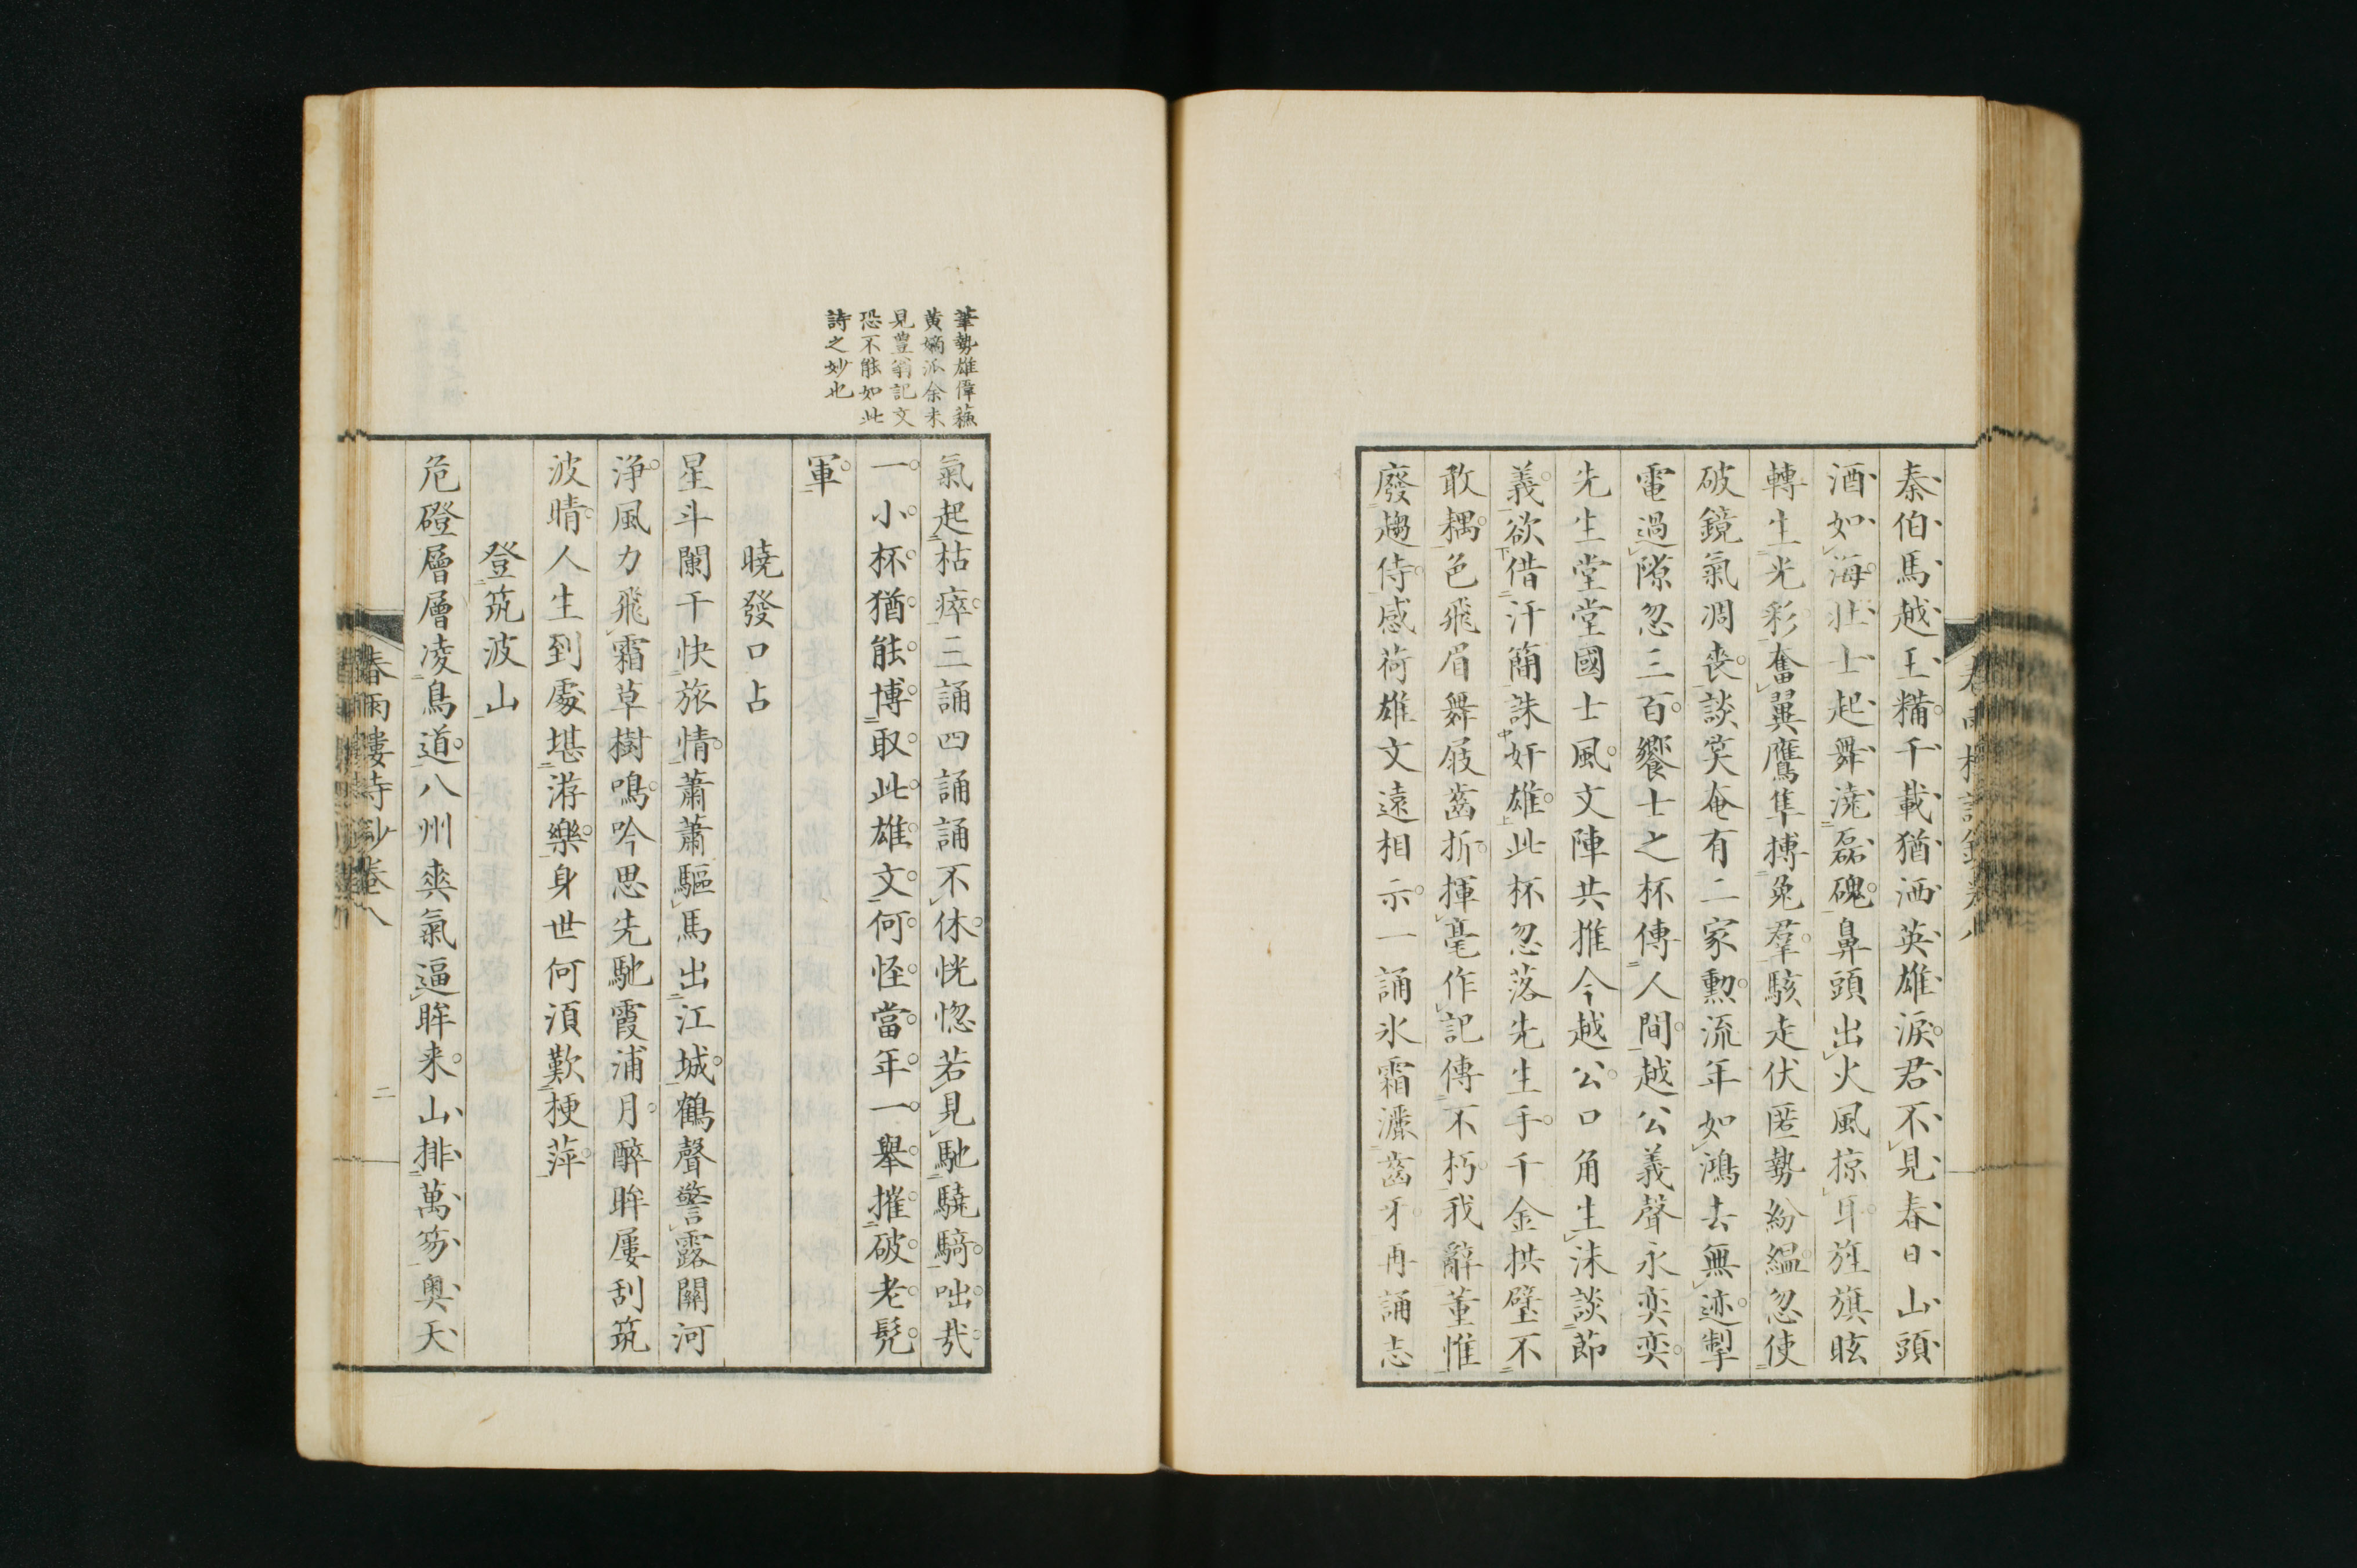 秦伯馬越王糒千載猶洒英雄淚君不見春日山頭
酒如海壯士起舞澆磊磈鼻頭出火風掠耳旌旗眩
轉生光彩奮翼鷹隼搏兔羣駭走伏匿勢紛緼忽使
破鏡氣凋喪談笑奄有二家勲流年如鴻去無迹掣
電過隙忽三百饗士之杯傳人間越公義聲永奕奕
先生堂堂國士風文陣共推今越公口角生沫談節
義欲借汗簡誅奸雄此杯忽落先生手千金拱璧不
敢耦色飛眉舞屐齒折揮毫作記傳不朽我辭董惟
廢趨侍感荷雄文遠相示一誦氷霜瀑齒牙再誦志
筆勢雄偉蘓
黄嫡派余未
見豊翁記文
恐不能如此
詩之妙也
氣起枯瘁三誦四誦誦不休恍惚若見馳驍騎咄哉
一小杯猶能博取此雄文何怪當年一舉摧破老髠
軍
曉發口占
星斗闌干快旅情蕭蕭驅馬出江城鶴聲警露關河
浄風力飛霜草樹鳴吟思先馳霞浦月醉眸屢刮筑
波晴人生到處堪游樂身世何湏歎梗萍
登筑波山
危磴層層凌鳥道八州爽氣逼眸来山排萬笏奥天
春雨樓詩鈔卷八
二